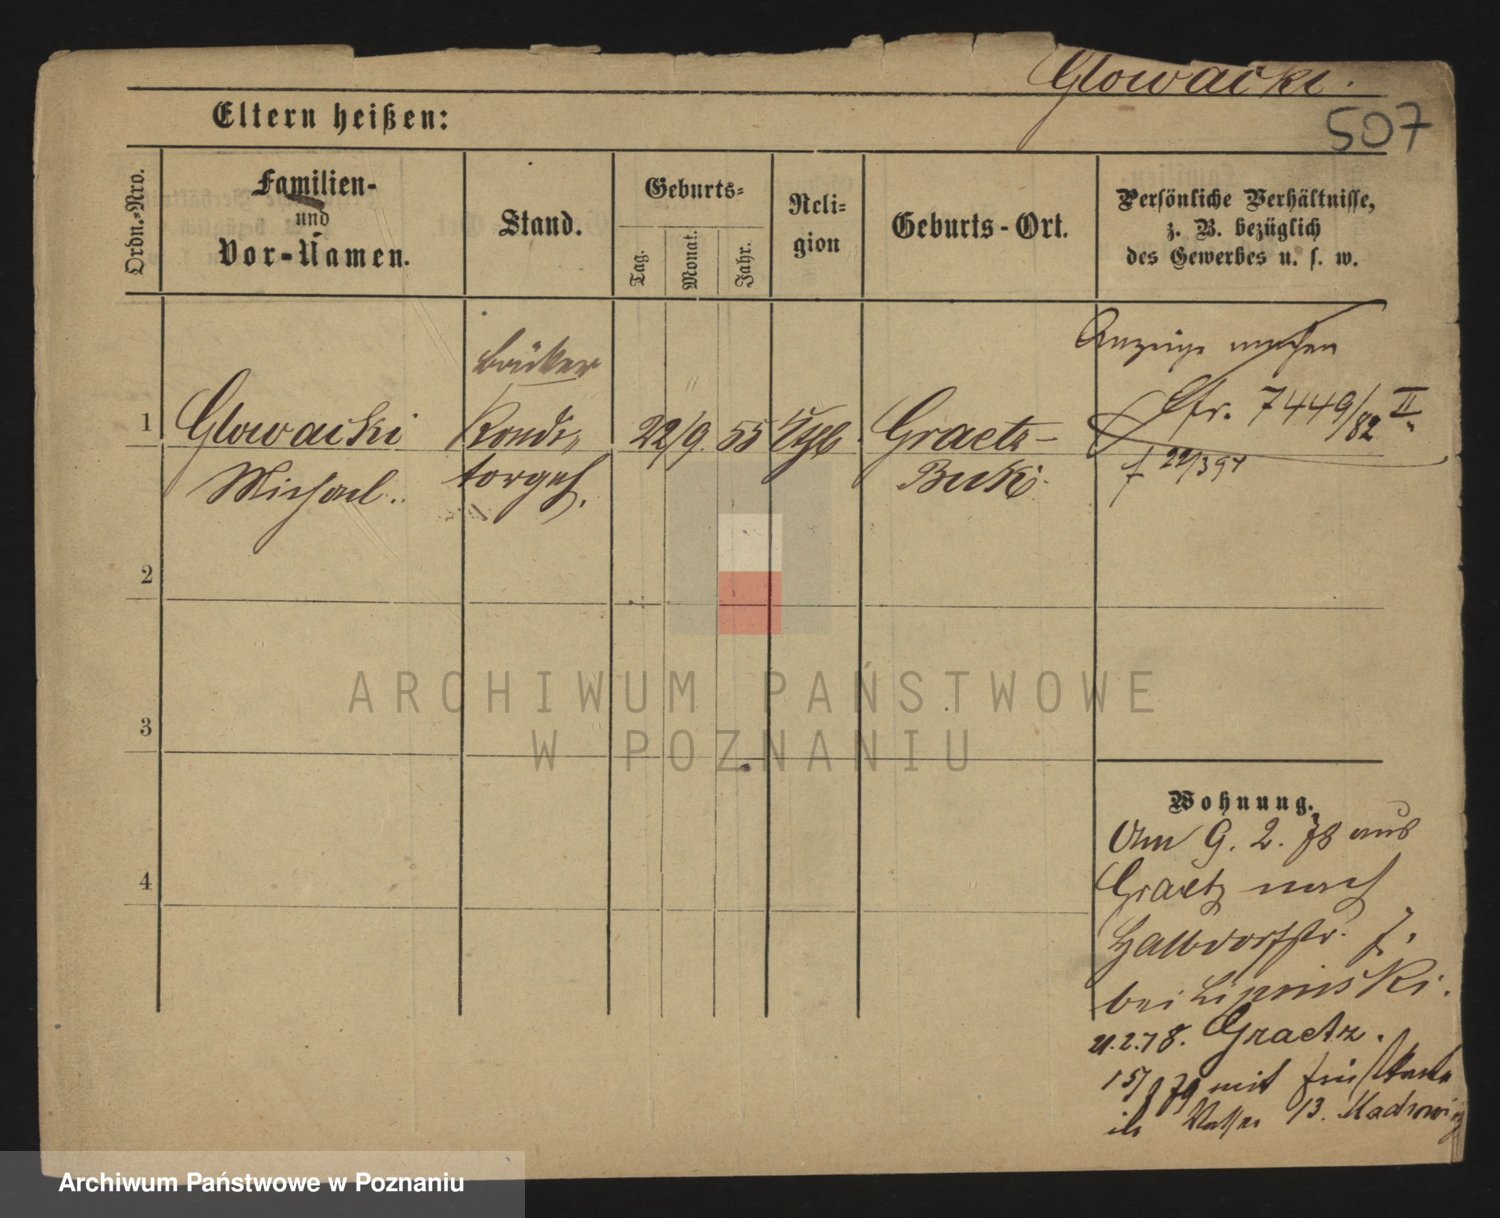 Glowacki.
507
Eltern heißen:
Ordn.-Nro.
Familien-
und
Vor-Namen.
Stand.
Geburts-
Tag.
Monat.
Jahr.
Reli-
gion
Geburts-Ort.
Persönliche Verhältnisse,
z. B. bezüglich
des Gewerbes u. s. w.
1
Glowacki
Michael.
Bäcker
Kondi-
torgeh.
22/9. 55
Graetz-
Buk.
Anzeige machen
Cfr. 7449/82 II.
2
3
4
Wohnung.
Am 9. 2. 78 aus
Graetz nach
Halbdorfstr. 7.
bei Lipinski.
21.2.78. Graetz.
mit
13.
ARCHIWUM PAŃSTWOWE
W POZNANIU
Archiwum Państwowe w Poznaniu